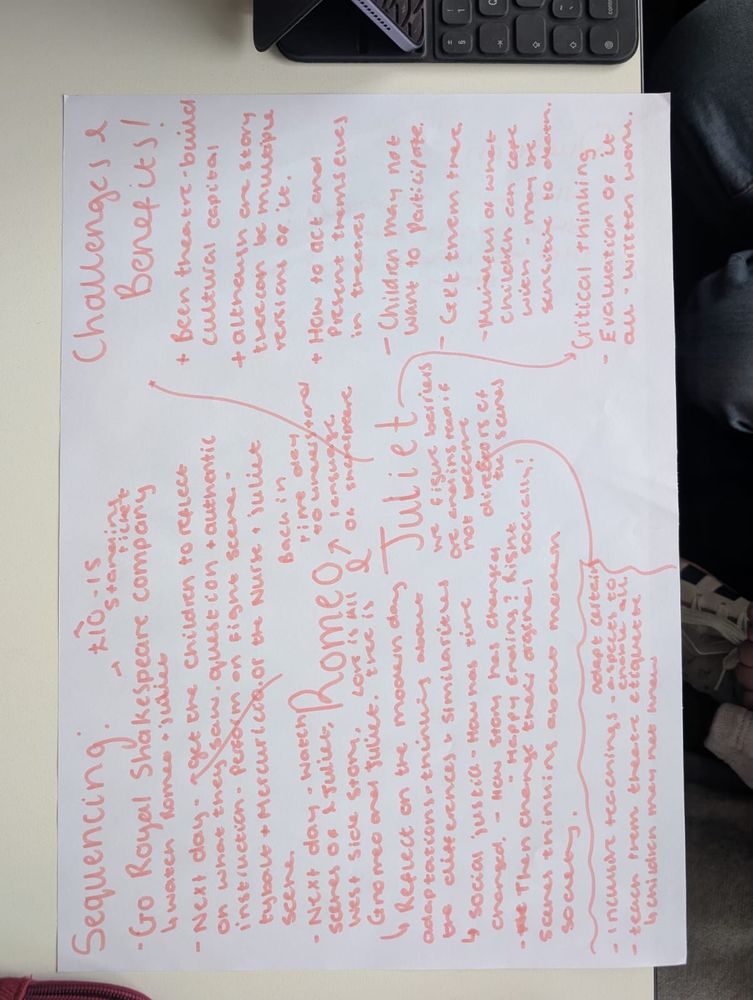 Sequencing.
→ £10.15
standing
ticket
- Go Royal Shakespeare company
↳ watch Romeo + Juliet
- Next day - get the children to reflect
on what they saw. question + authentic
instruction - Perform on Fight scene -
tybalt + Mercuricio or the Nurse + Juliet
scene.
Back in
time day
to understand
language
of shakespeare
- Next day - watch
scenes of & Juliet,
West side story, Love is All
Gnomeo and Juliet. there is
Romeo &
Juliet
↳ Reflect on the modern day
adaptations - thinking about
the differences + similarities
↳ social justice - How has time
changed. - How story has changes
- Happy Ending? Right
- Then change their orginal socially:
scenes thinning about modern
society.
we figure barriers
are and instan if
not become
directors of
the scenes
- Incusive teachings - adapt certain
aspects to
enable all
- teach them theatre etiquette
↳ children may not know
Challenges &
Benefits!
+ Been theatre - builds
cultural capital
+ although one story
there can be multiple
versions of it.
+ How to act and
Present themselves
in theatres
- Children may not
want to Participate.
- Get them there.
- Mindful of what
children can cope
with - may be
sensitive to death.
Critical thinking
- Evaluation of it
all - written work.